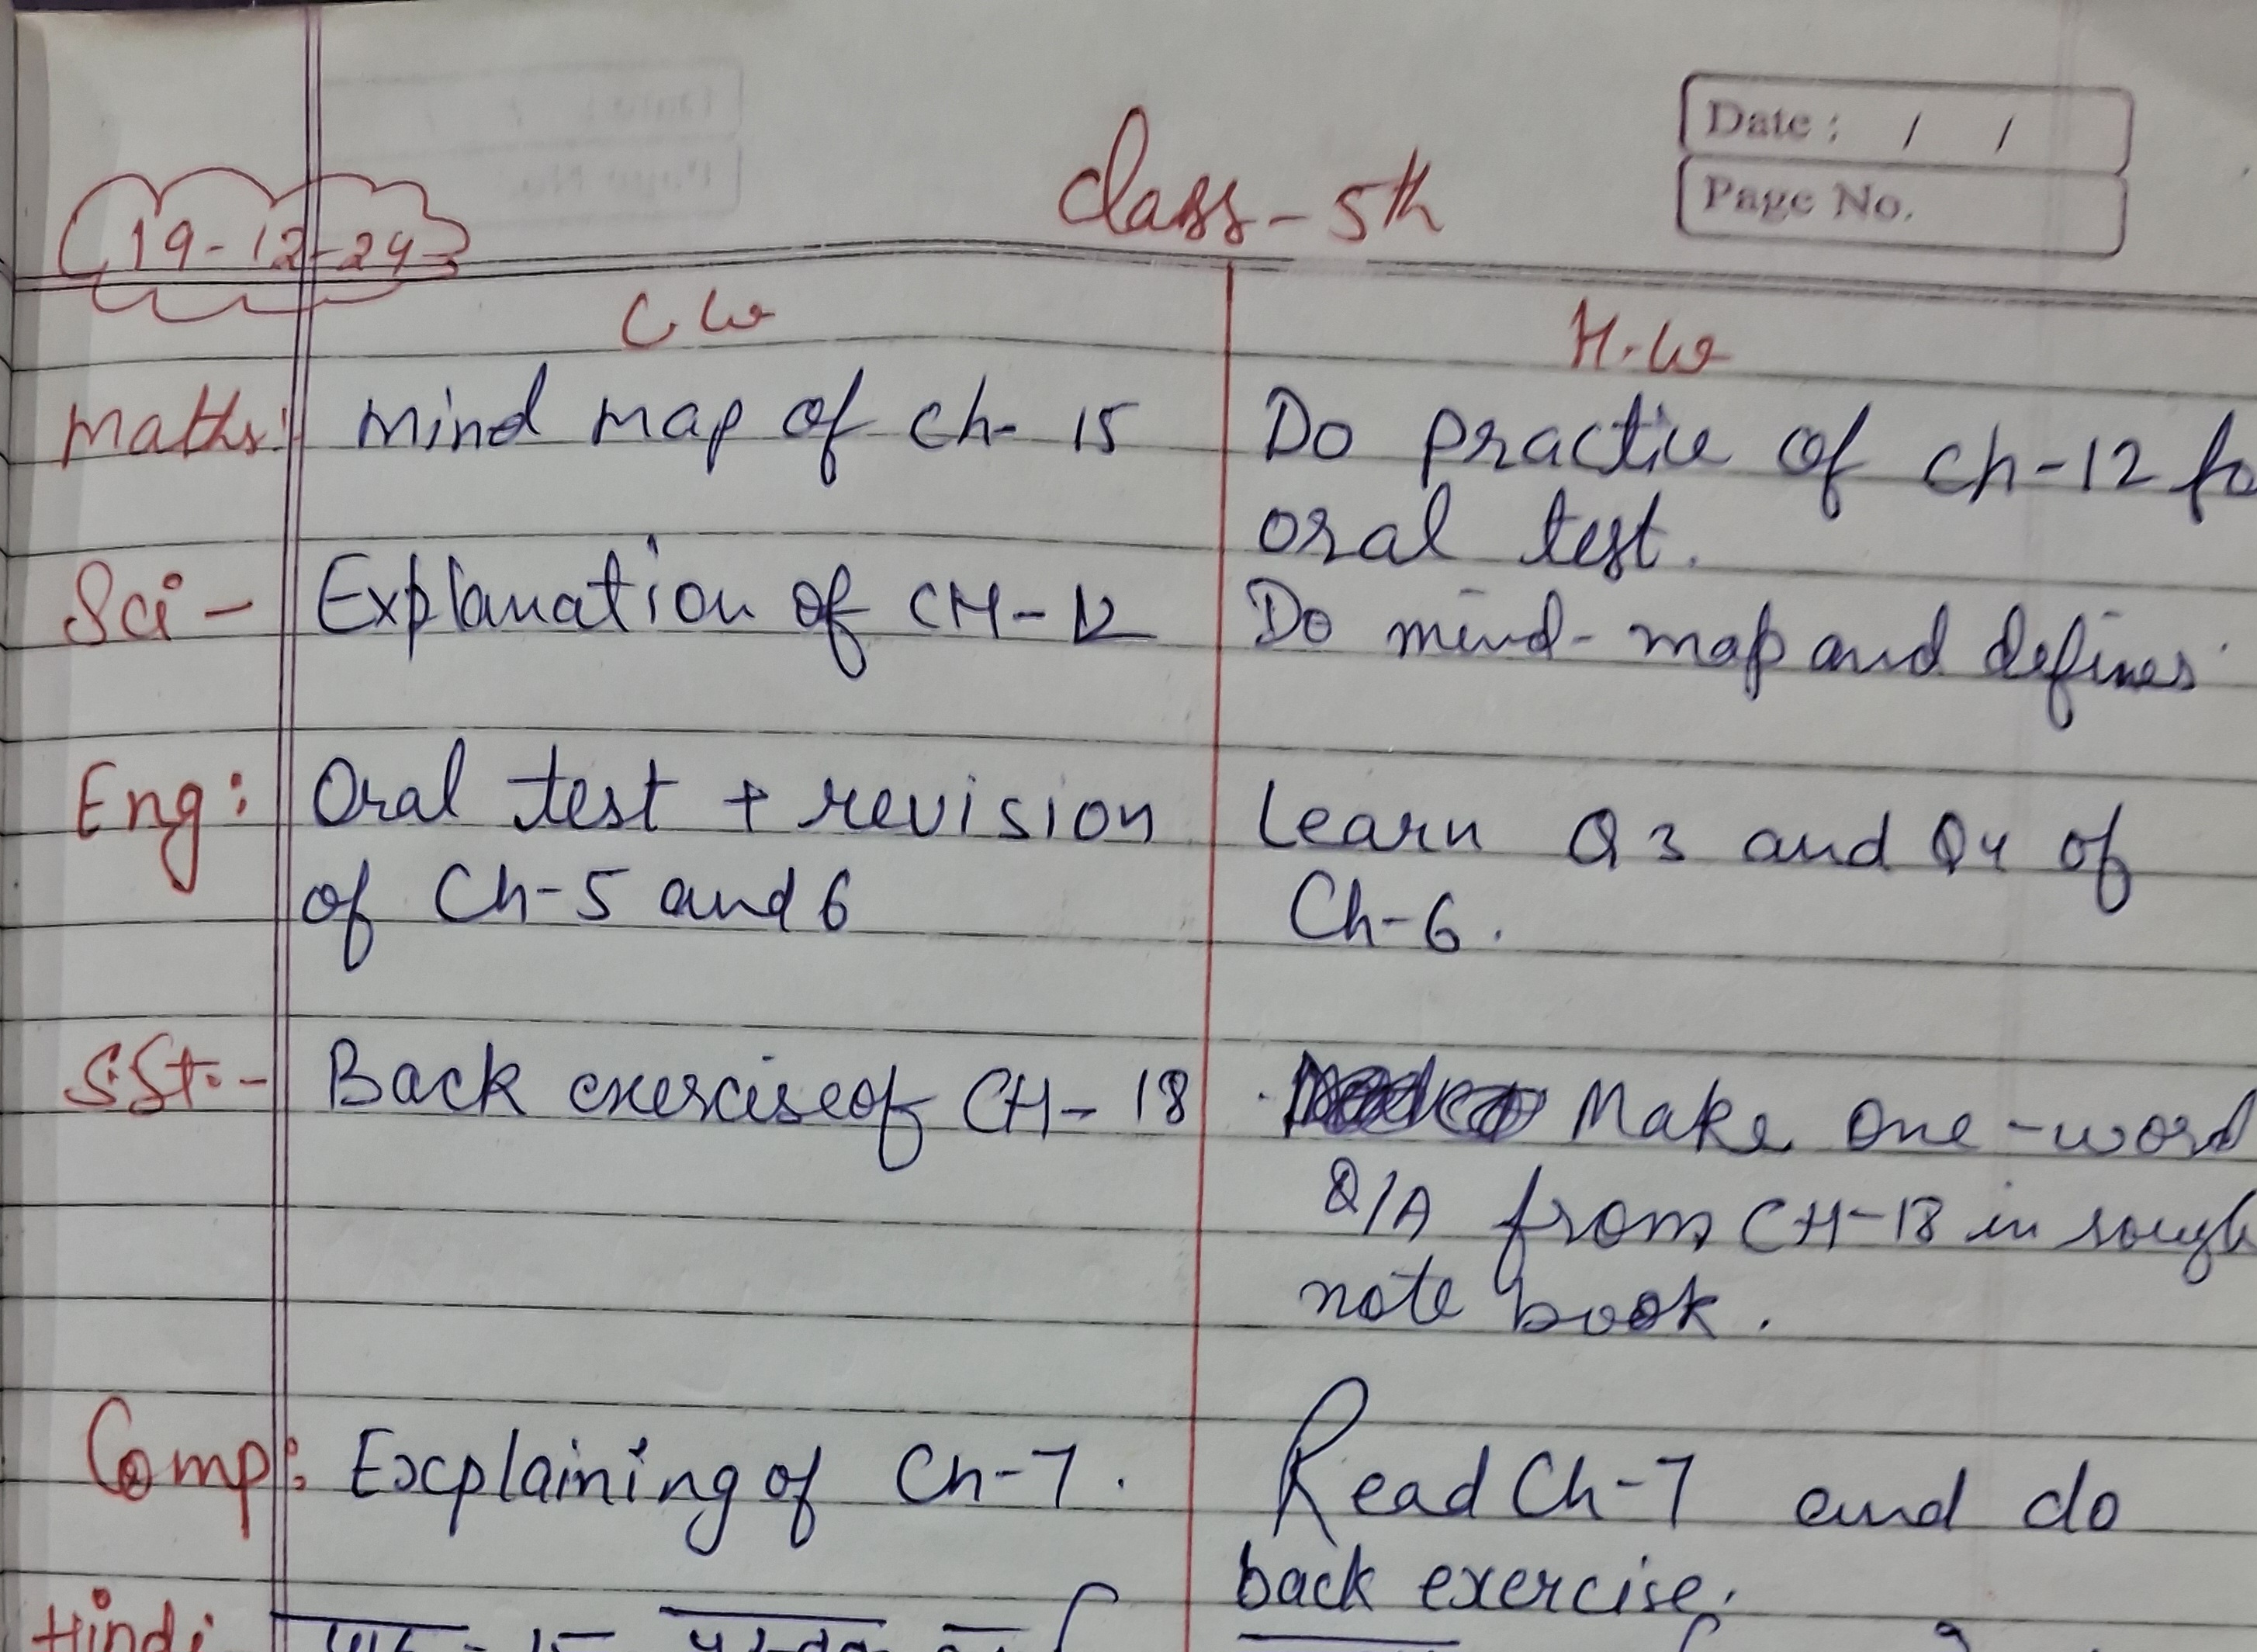 Date : / /
Page No.
Class - 5th
19-12-24
C.W
H.W
Maths: Mind map of Ch- 15 Do practice of Ch-12
oral test.
Sci - Explanation of CH-12 Do mind-map and defines
Eng: Oral test + revision Learn Q3 and Q4 of
of Ch-5 and 6 Ch-6.
S.St.- Back exercise of CH- 18 Make one-word
Q/A from CH-18 in rough
note book.
Comp: Explaining of Ch-7. Read Ch-7 and do
back exercise.
Hindi